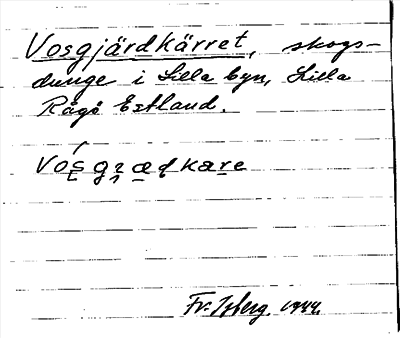 Vosgjärdkärret, skogs-
dunge i Lilla byn, Lilla
Rågö Estland.
Vósgɂædkare
Fr. Isberg. 1944.